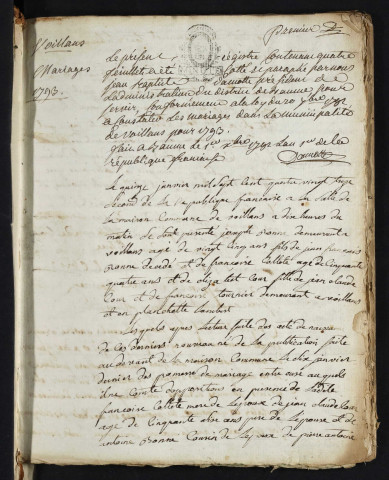 premier
Voillans
Mariages
1793.
Le présent registre contenant quatre
feuillets a été cotté et paraphé par nous
jean baptiste Damotte président de
L'administration du district de Baume pour
servir, conformément a la loy du 20 7bre 1792
a Constater les mariages dans la municipalité
de voillans pour 1793.
fait a Baume le 1er Xbre 1792 L'an 1er de la
république française
Damotte
Le quinze janvier mil sept cent quatre vingt treze
second de la république française a la salle de
la maison Commune de voillans a dix heures du
matin se sont présenté joseph bonne demeurant a
voillans agé de vingt cinq ans fils de jean francois
bonne et de francoise Collote agée de Cinquante
quatre ans et de elizabet Cour fille de jean claude
Cour et de francoise tournier demeurant a voillans
et
Lesquels apres lecture faite des acte de naissance
de ces derniers de la publication faite
au devant de la maison Commune le dix janvier
dernier des promesse de mariage entre eux auquels
d'une Comte opposition en présence de ladite
francoise Collote mere de lepoux de jean claude Cour
agé de Cinquante ans pere de lepouse et de
antoine bonne Cousin de lepoux de pierre antoine